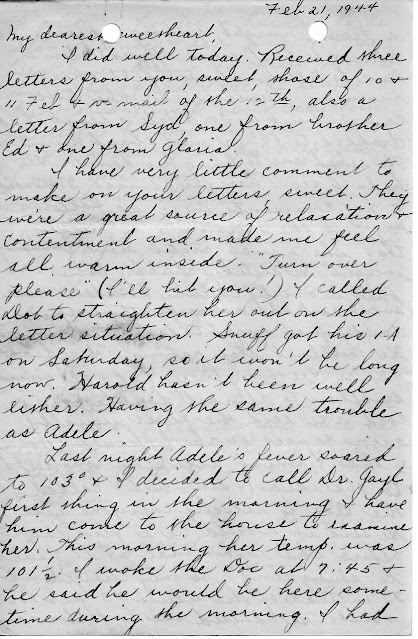 Feb 21, 1944
My dearest sweetheart,
I did well today. Received three
letters from you, sweet, those of 10 &
11 Feb & v-mail of the 12th, also a
letter from Syd, one from brother
Ed & one from Gloria.
I have very little comment to
make on your letters, sweet. They
were a great source of relaxation &
contentment and made me feel
all warm inside. "Turn over
please" (I'll hit you!) I called
Dot to straighten her out on the
letter situation. Snuff got his 1-A
on Saturday, so it won't be long
now. Harold hasn't been well
either. Having the same trouble
as Adele.
Last night Adele's fever soared
to 103° & I decided to call Dr. Gayl
first thing in the morning & have
him come to the house to examine
her. This morning her temp. was
101½. I woke the Doc at 7:45 &
he said he would be here some-
time during the morning. I had